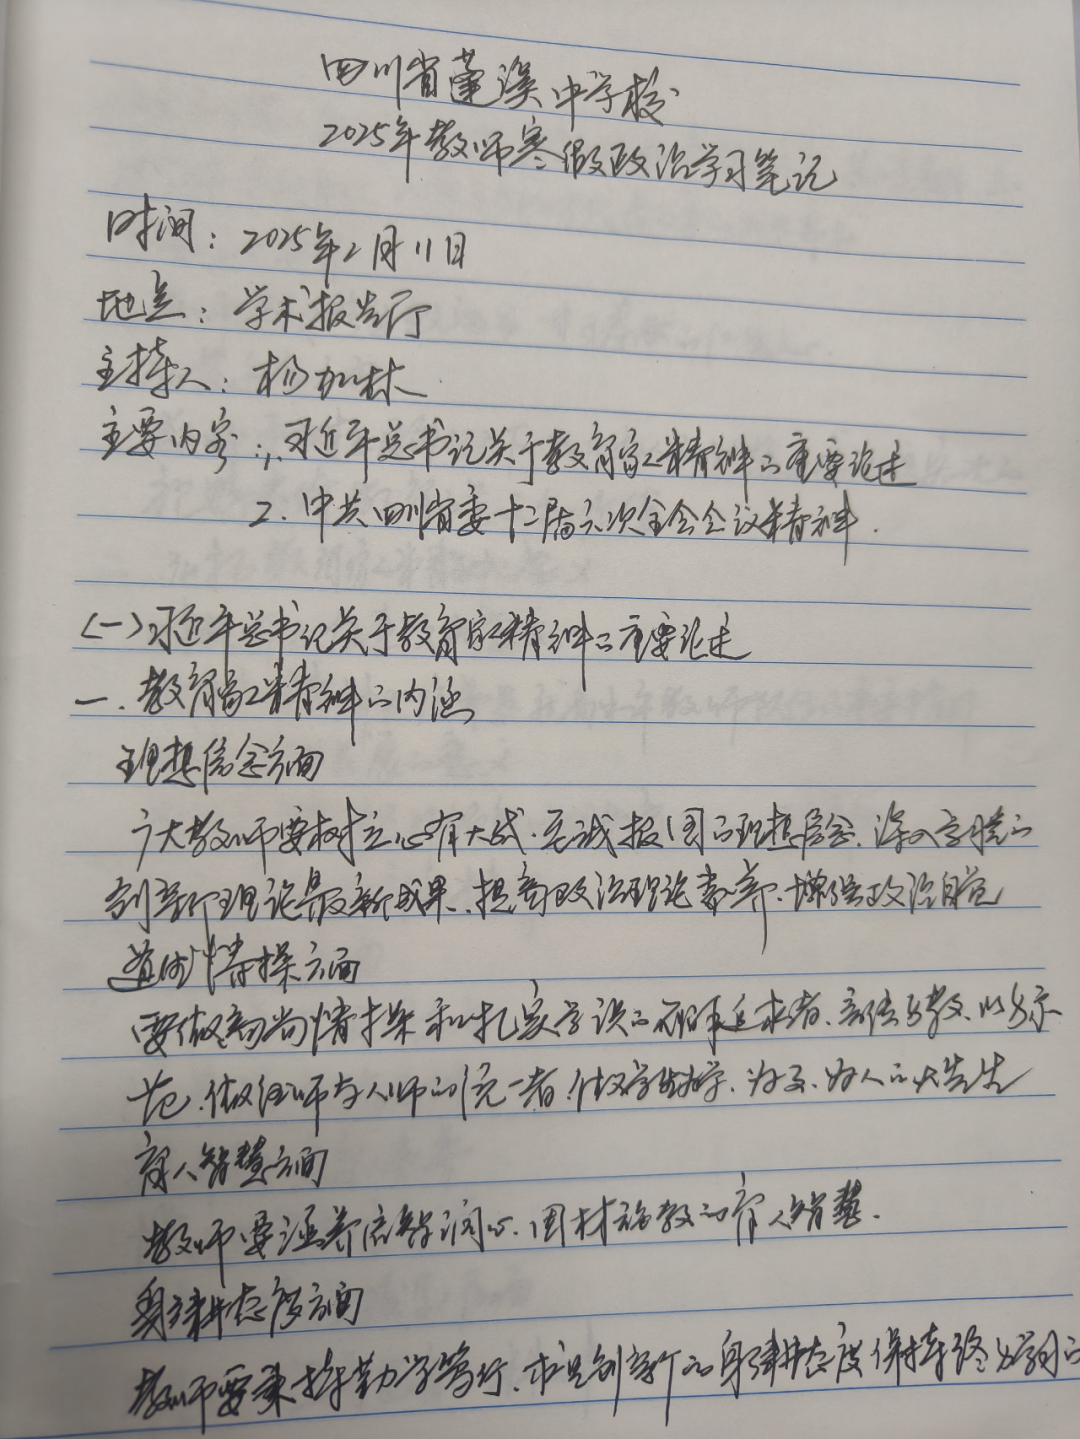 四川省蓬溪中学校
2025年教师寒假政治学习笔记
时间：2025年2月11日
地点：学术报告厅
主持人：杨加林
主要内容：1.习近平总书记关于教育家精神的重要论述
2.中共四川省委十二届六次全会会议精神.
(一)习近平总书记关于教育家精神的重要论述
一.教育家精神的内涵
理想信念方面
广大教师要树立心有大我.至诚报国的理想信念.深入学习党的
创新理论最新成果.提高政治理论素养.增强政治自觉
道德情操方面
要做高尚情操和扎实学识的不懈追求者.言传身教.以身示
范.做经师与人师的统一者.做学生为学.为事.为人的大先生
育人智慧方面
教师要涵养启智润心.因材施教的育人智慧.
躬耕态度方面
教师要秉持勤学笃行.求是创新的躬耕态度保持终身学习的